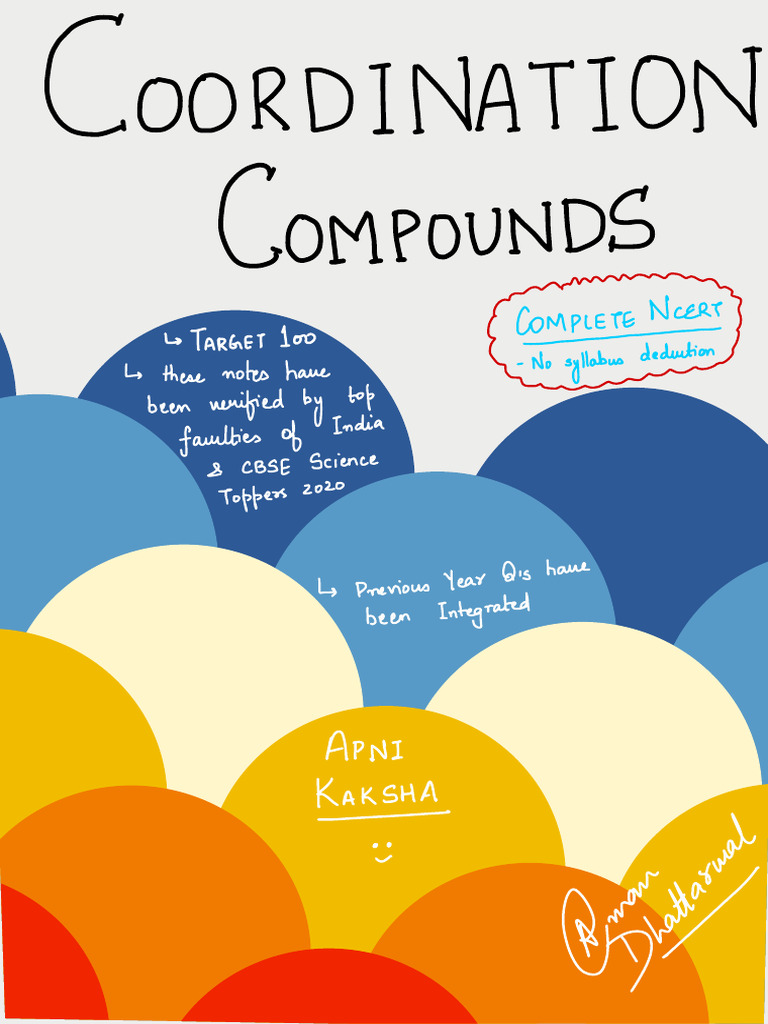 COORDINATION
COMPOUNDS
COMPLETE NCERT
- No syllabus deduction
↳ TARGET 100
↳ these notes have
been verified by top
faculties of India
& CBSE Science
Toppers 2020
↳ Previous Year Q's have
been Integrated
APNI
KAKSHA
Aman
Dhattarwal